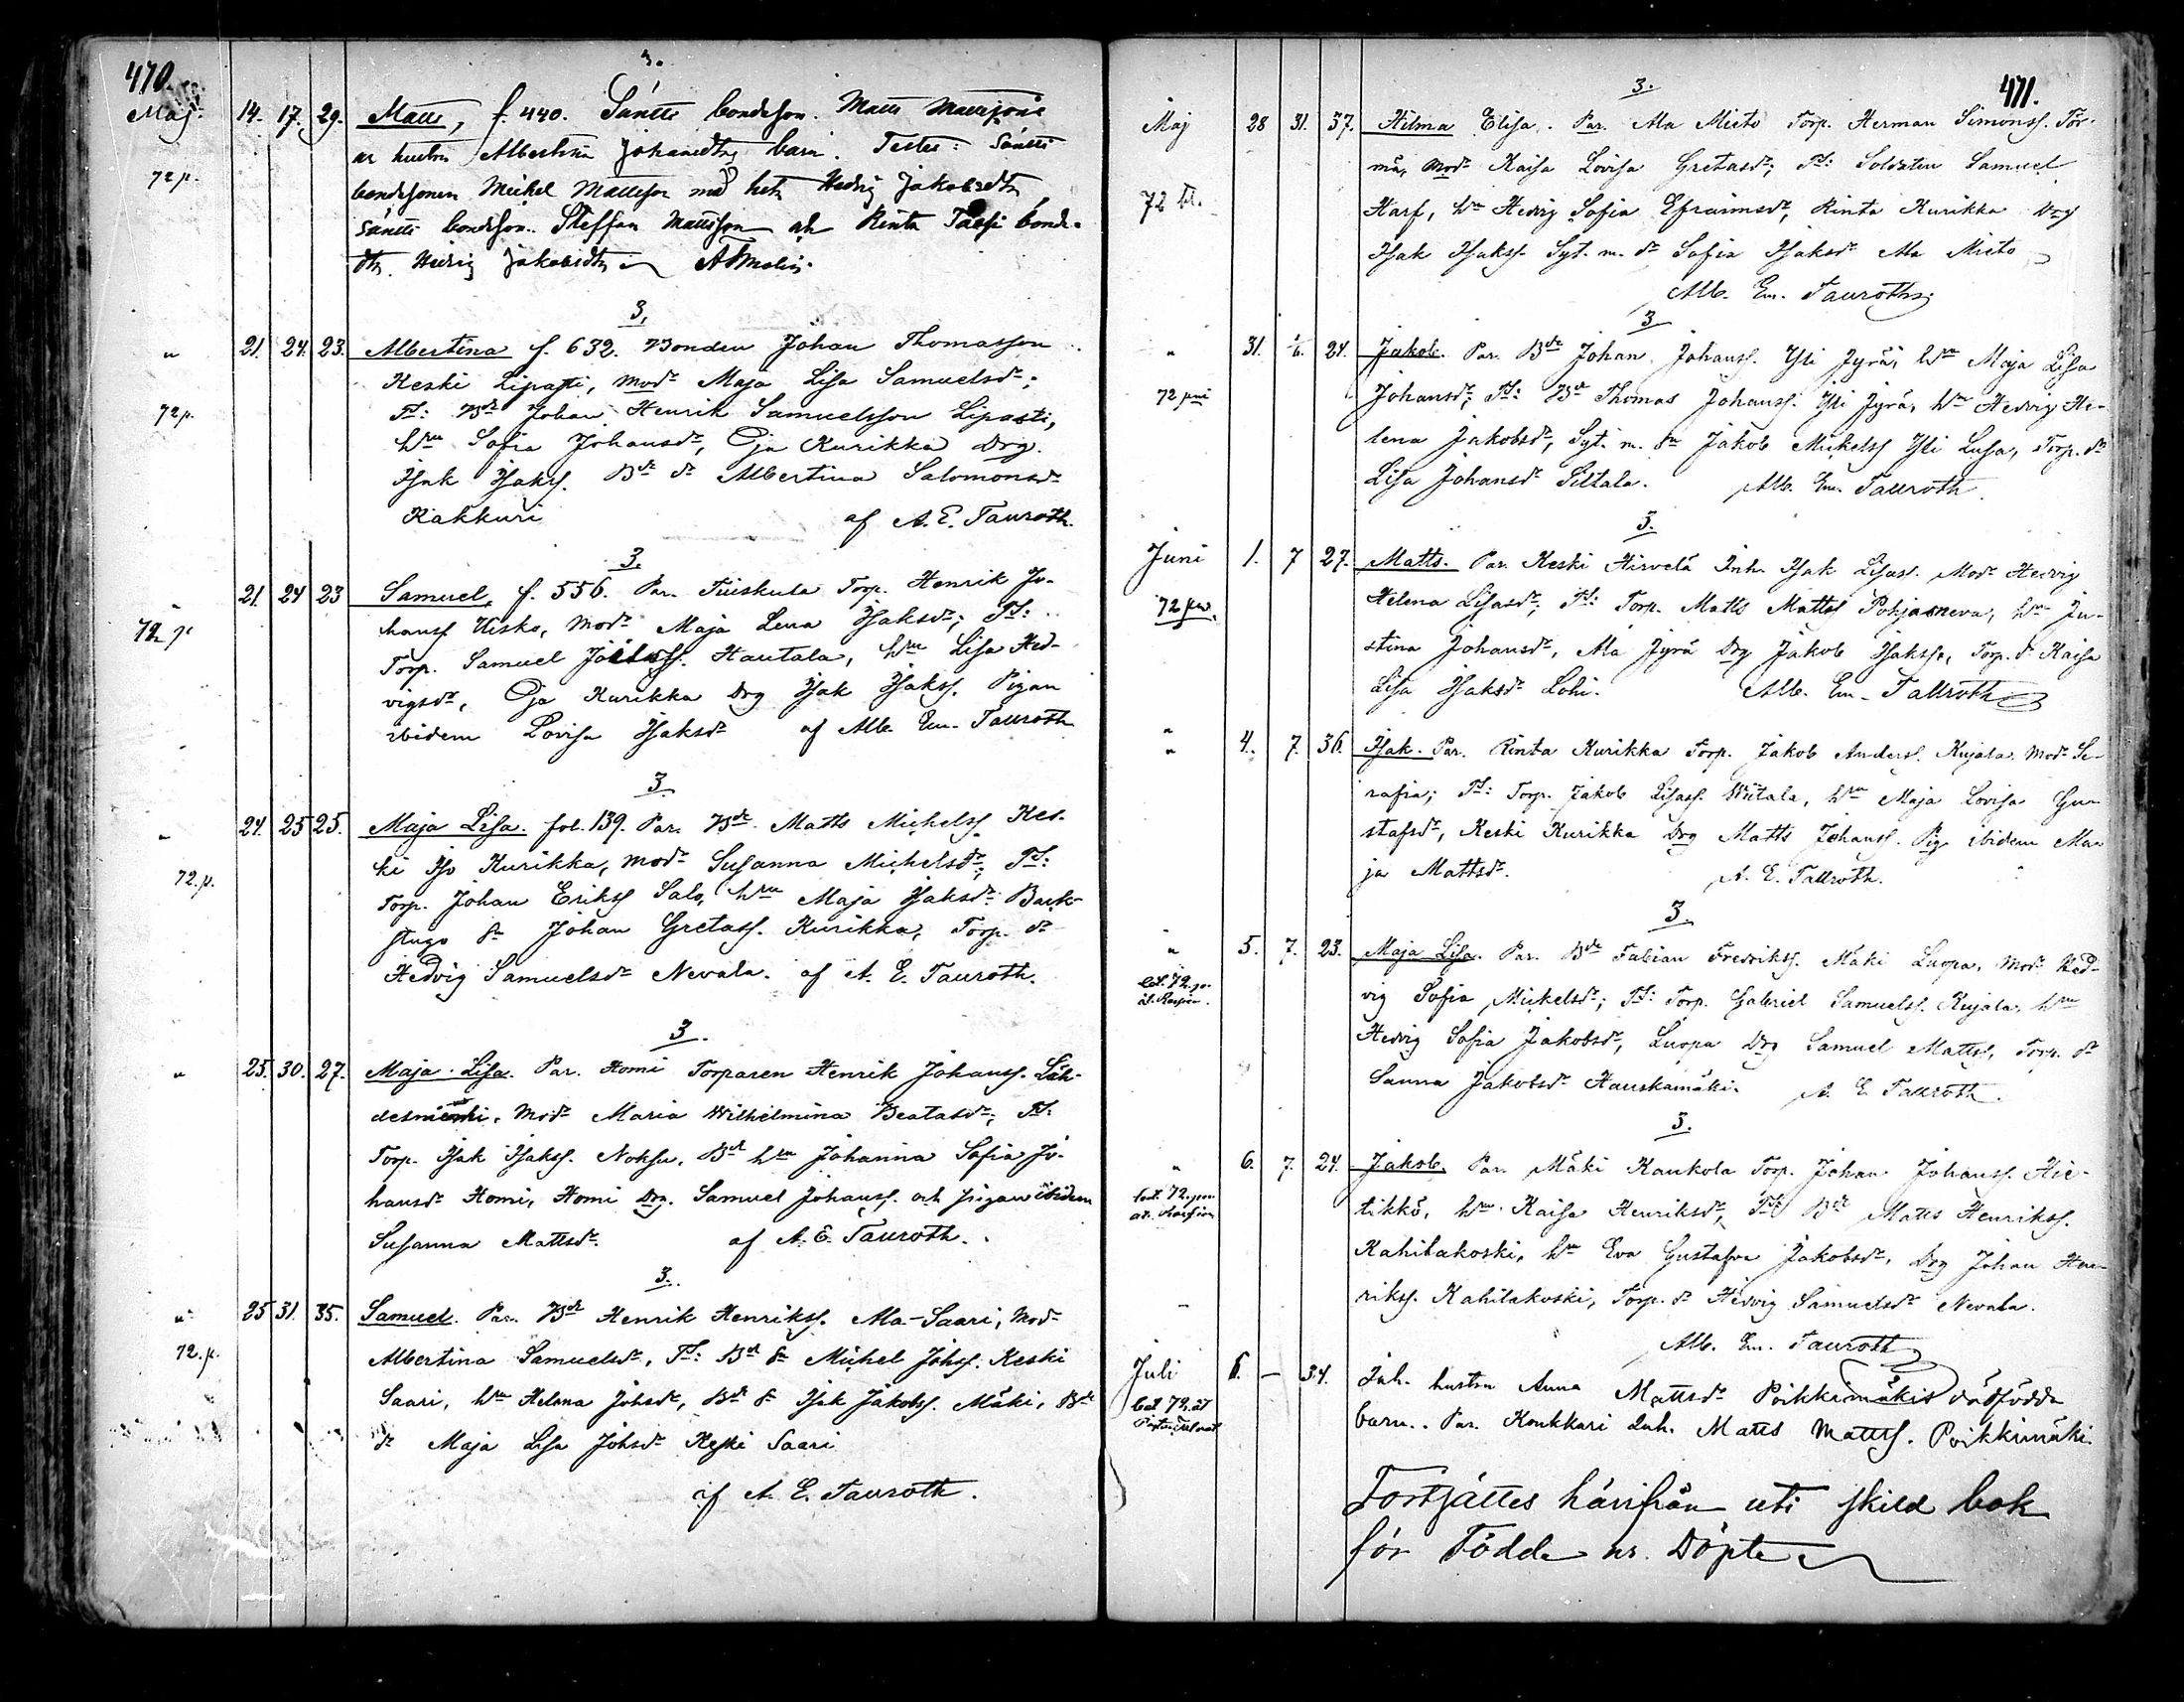 470.
3.
Maj. 14. 17. 29. Matts, f. 440. Säntti bondeson. Matts Mattssons
hustru Albertina Johansdtrs barn. Testes: Säntti
72 p. bondesonen Michel Mattsson med hust. Hedvig Jakobsdtr
Säntti bondeson. Steffan Mattsson och Rinta Taipi bonde-
dtr. Hedvig Jakobsdtr
3.
" 21. 24. 23. Albertina f. 632. Bonden Johan Thomasson
Keski Lipasti, modr Maja Lisa Samuelsdr;
72 p. Ts: Bde Johan Henrik Samuelsson Lipasti,
hru Sofia Johansdr, Oja Kurikka Drg.
Isak Isakss. Bde dr Albertina Salomonsdr
Kakkuri af A. E. Tauroth.
3.
" 21. 24 23 Samuel, f. 556. Par. Tuiskula Torp. Henrik Jo-
72 p hanss Uisko, Modr Maja Lena Isaksdr; Ts:
Torp. Samuel Hautala, hru Lisa Hed-
vigsdr, Oja Kurikka Drg Isak Isakss. Pigan
ibidem Lovisa Isaksdr af Alb. Em. Tauroth
3.
" 24. 25 25. Maja Lisa. fol. 139. Par. Bde Matts Michelss Kes-
72. p. ki Iso Kurikka, modr Susanna Michelsdr; Ts:
Torp. Johan Erikss Salo, hru Maja Isaksdr Back-
stugo sn Johan Gretass. Kurikka, Torp. dr
Hedvig Samuelsdr Nevala. af A. E. Tauroth.
3.
" 25. 30. 27. Maja Lisa. Par. Homi Torparen Henrik Johanss. Läh-
desniemi. Modr Maria Wilhelmina Beatasdr; Ts:
Torp. Isak Isakss. Noksu, Bde hru Johanna Sofia Jo-
hansdr Homi, Homi Drg. Samuel Johanss. och pigan ibidem
Susanna Mattsdr. af A. E. Tauroth.
3.
" 25 31. 35. Samuel. Par. Bde Henrik Henrikss. Ala-Saari, Modr
72. p. Albertina Samuelsdr, Ts: Bde sn Michel Johss. Keski
Saari, hru Helena Johsdr, Bde sn Isak Jakobss. Mäki, Bde
dr Maja Lisa Johsdr Keski Saari
af A. E. Tauroth.
471.
3.
Maj 28 31. 37. Hilma Elisa. Par. Ala Mieto Torp. Herman Simonss. Tör-
mä, Modr Kaisa Lovisa Gretasdr; Ts: Soldaten Samuel
72 Harf, hru Hedvig Sofia Efraimsdr, Rinta Kurikka Drg
Isak Isakss. Syt. m. dr Sofia Isaksdr Ala Mieto
Alb. Em. Tauroth
3
" 31. 1/6. 24. Jakob. Par. Bde Johan Johanss. Yli Jyrä, hru Maja Lisa
72 Johansdr; Ts: Bde Thomas Johanss. Yli Jyrä, hru Hedvig He-
lena Jakobsdr, Syt. m. sn Jakob Mickelss Yli Lusa, Torp. dr
Lisa Johansdr Siltala. Alb. Em. Tauroth.
3.
Juni 1. 7 27. Matts. Par. Keski Hirvelä Inh. Isak Lisass. Modr Hedvig
72 Helena Lisasdr; Ts: Torp. Matts Mattss Pohjasneva, hru Ju-
stina Johansdr, Ala Jyrä Drg Jakob Isakss, Torp. dr Kaisa
Lisa Isaksdr Lohi. Alb. Em. Tallroth
" 4. 7. 36. Isak. Par. Rinta Kurikka Torp. Jakob Anderss. Kujala. Modr Se-
rafia; Ts: Torp. Jakob Lisass. Wiitala, hru Maja Lovisa Gu-
stafsdr, Keski Kurikka Drg Matts Johanss. Pig. ibidem Ma-
ja Mattsdr. A. E. Tallroth.
3.
" 5. 7. 23. Maja Lisa. Par. Bde Fabian Fredrikss. Mäki Luopa, Modr Hed-
vig Sofia Mickelsdr; Ts: Torp. Gabriel Samuelss. Kujala, hru
Hedvig Sofia Jakobsdr, Luopa Drg Samuel Mattss, Torp. dr
Sanna Jakobsdr Hauskamäki. A. E. Tauroth.
3.
" 6. 7. 24. Jakob. Par. Mäki Kaukola Torp. Johan Johanss. Hie-
tikkö, hru Kaisa Henriksdr, Ts: Bde Matts Henrikss.
Kahilakoski, hru Eva Gustafva Jakobsdr, Drg Johan Hen-
rikss. Kahilakoski, Torp. dr Hedvig Samuelsdr Nevala.
Alb. Em. Tauroth
Juli 6. — 34. Inh. hustru Anna Mattsdr Poikkimäkis dödfödda
barn. Par. Konkkari Inh. Matts Mattss. Poikkimäki.
Fortsättes härifrån uti skild bok
för Födde o. Döpte